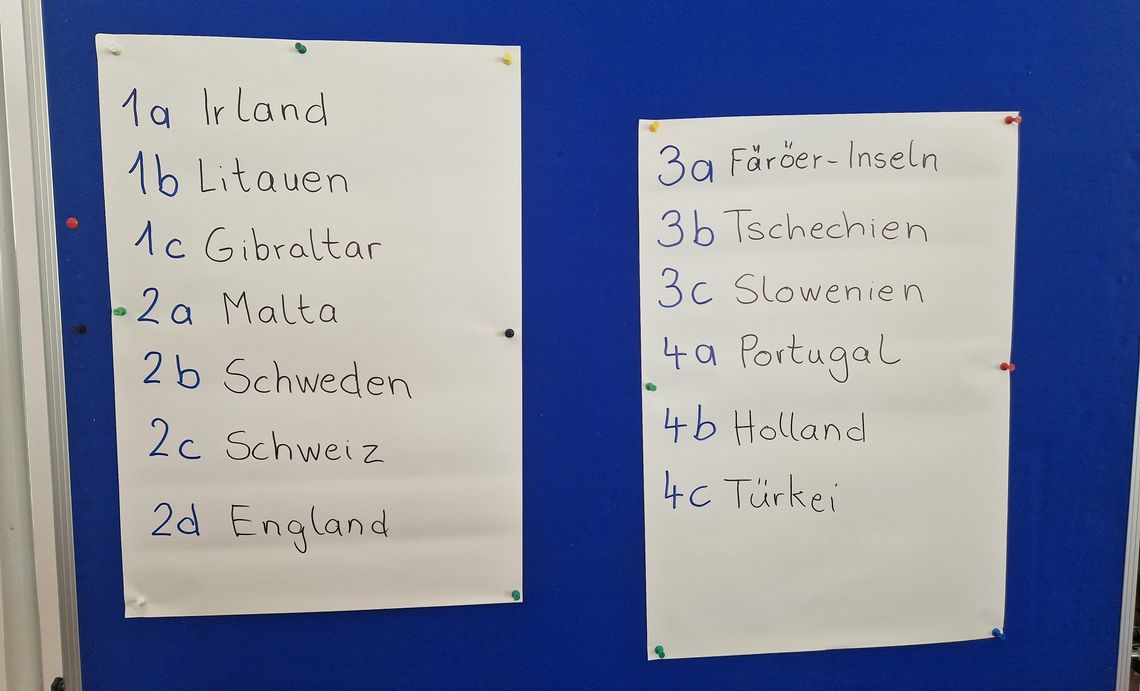 1a Irland
1b Litauen
1c Gibraltar
2a Malta
2b Schweden
2c Schweiz
2d England
3a Färöer-Inseln
3b Tschechien
3c Slowenien
4a Portugal
4b Holland
4c Türkei